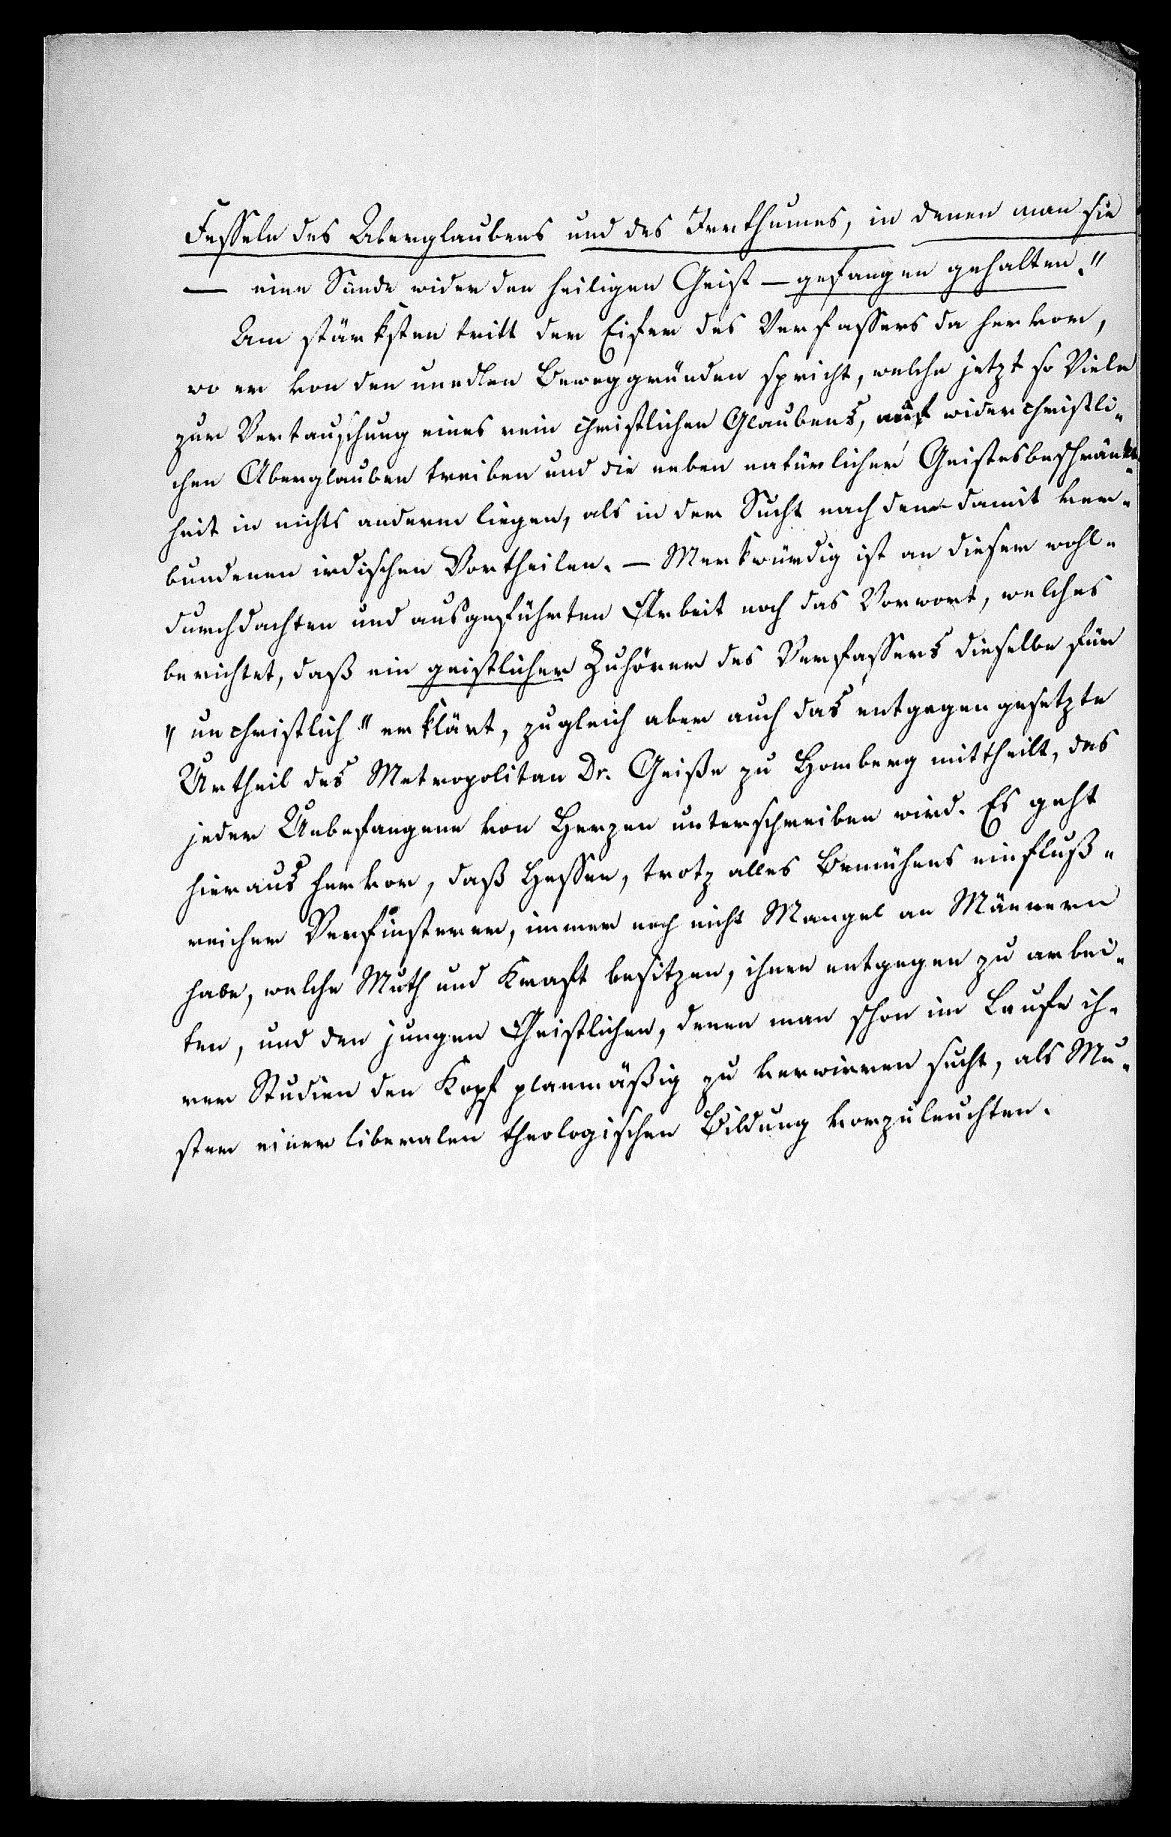 Fesseln des Aberglaubens und des Irrthumes, in denen man sie
— eine Sünde wider den heiligen Geist — gefangen gehalten."
Am stärksten tritt der Eifer des Verfassers da hervor,
wo er von den unedlen Beweggründen spricht, welche jetzt so Viele
zur Vertauschung eines rein christlichen Glaubens, mit widerchristli-
chen Aberglauben treiben und die neben natürlicher Geistesbeschränkt-
heit in nichts anderm liegen, als in der Sucht nach den damit ver-
bundenen irdischen Vortheilen. — Merkwürdig ist an dieser wohl-
durchdachten und ausgeführten Arbeit noch das Vorwort, welches
berichtet, daß ein geistlicher Zuhörer des Verfassers dieselbe für
"unchristlich" erklärt, zugleich aber auch das entgegengesetzte
Urtheil des Metropolitan Dr. Geiße zu Homberg mittheilt, das
jeder Unbefangene von Herzen unterschreiben wird. Es geht
hieraus hervor, daß Hessen, trotz alles Bemühens einfluß-
reicher Verfinsterer, immer noch nicht Mangel an Männern
habe, welche Muth und Kraft besitzen, ihnen entgegen zu arbei-
ten, und den jungen Geistlichen, denen man schon im Laufe ih-
rer Studien den Kopf planmäßig zu verwirren sucht, als Mu-
ster einer liberalen theologischen Bildung vorzuleuchten.